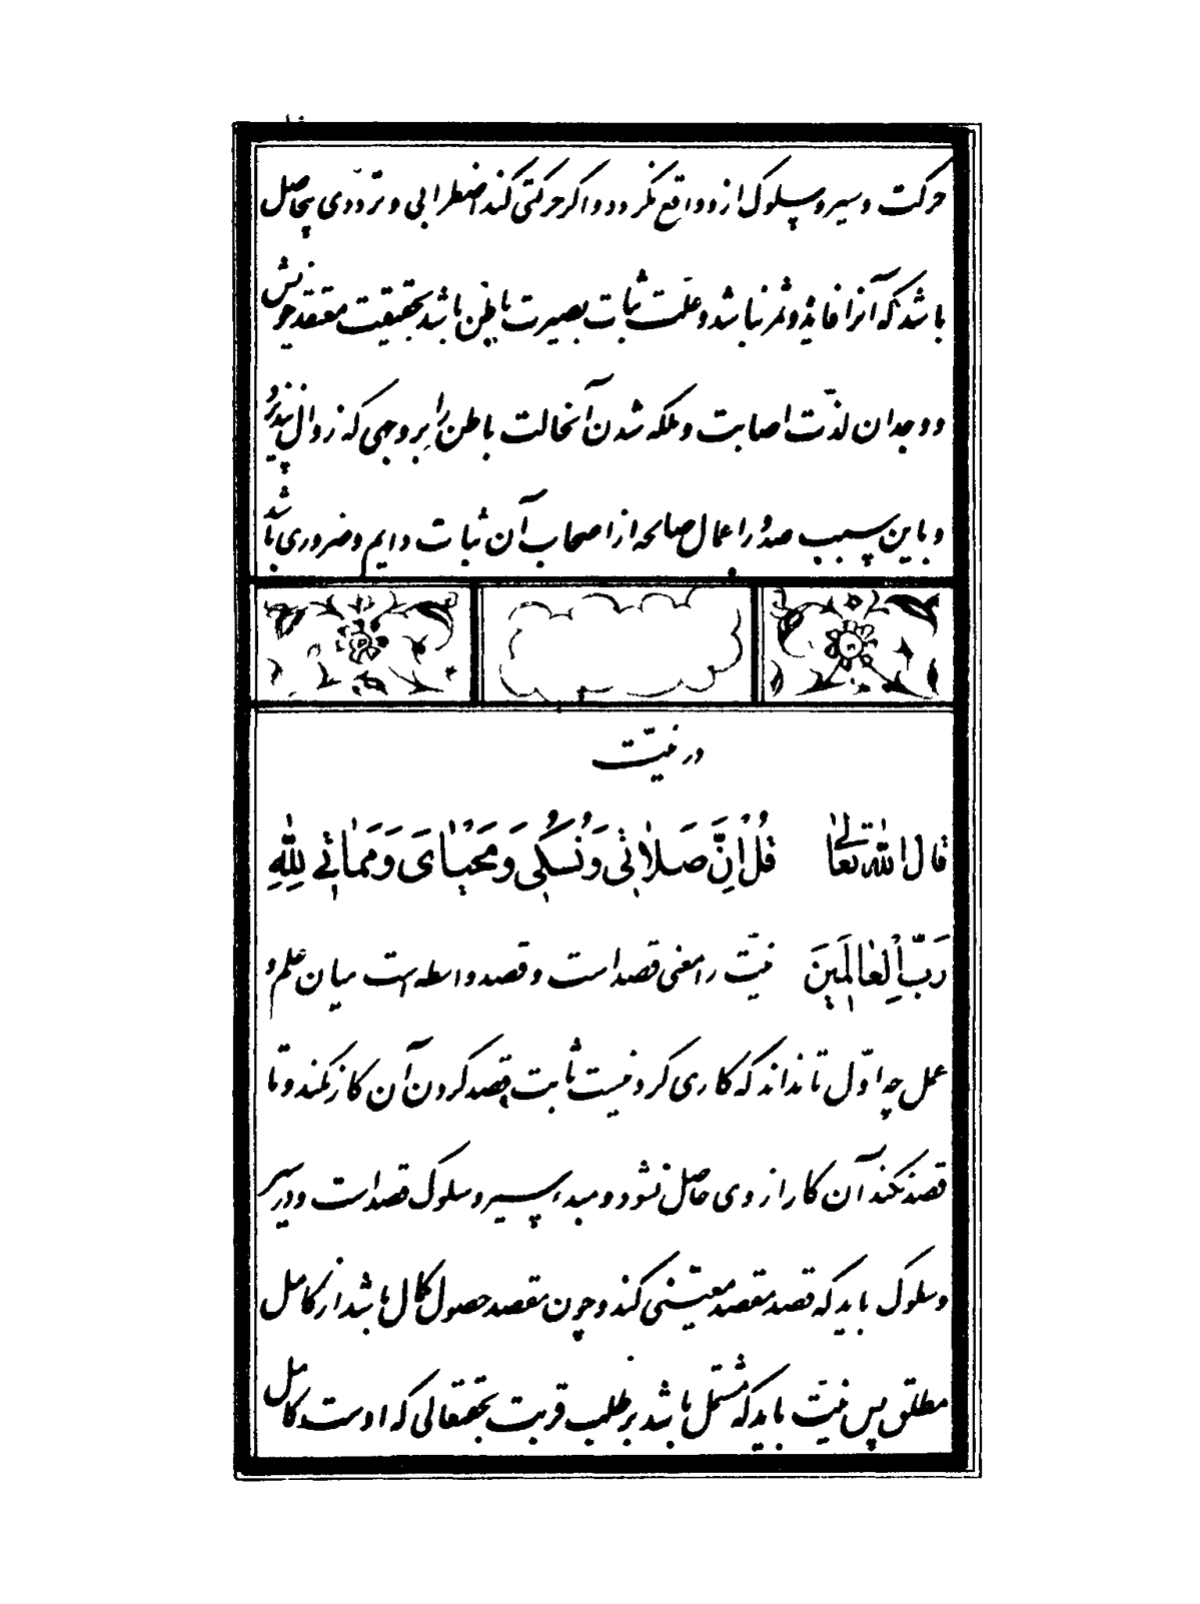 حرکت و سیر و سلوک از و واقع نکردد و اکر حرکتی کند اضطرابی و تردّدی بیحاصل
باشد که آنرا فایده و ثمر نباشد و علّت ثبات بصیرت باطن باشد بحقیقت معتقد خویش
و وجدان لذّت اصابت و ملکه شدن آنحالت باطن را بر وجهی که زوال نپذیرد
و باین سبب صدور اعمال صالحه از اصحاب آن ثبات دایم و ضروری باشد
در نیّت
قال الله تعالی قُلْ اِنَّ صَلاٰتٖی وَنُسُکٖی وَمَحْیٰایَ وَمَمٰاتٖی لِلّٰهِ
رَبِّ الْعٰالَمٖینَ نیّت را معنی قصد است و قصد واسطه است میان علم و
عمل چه اوّل تا نداند که کاری کرد نیست ثابت قصد کردن آن کار نکند و تا
قصد نکند آن کار از وی حاصل نشود و مبدء سیر و سلوک قصد است و در سیر
و سلوک باید که قصد مقصد معیّنی کند و چون مقصد حصول کمال باشد از کامل
مطلق پس نیّت باید که مشتمل باشد بر طلب قربت بحقتعالی که اوست کامل